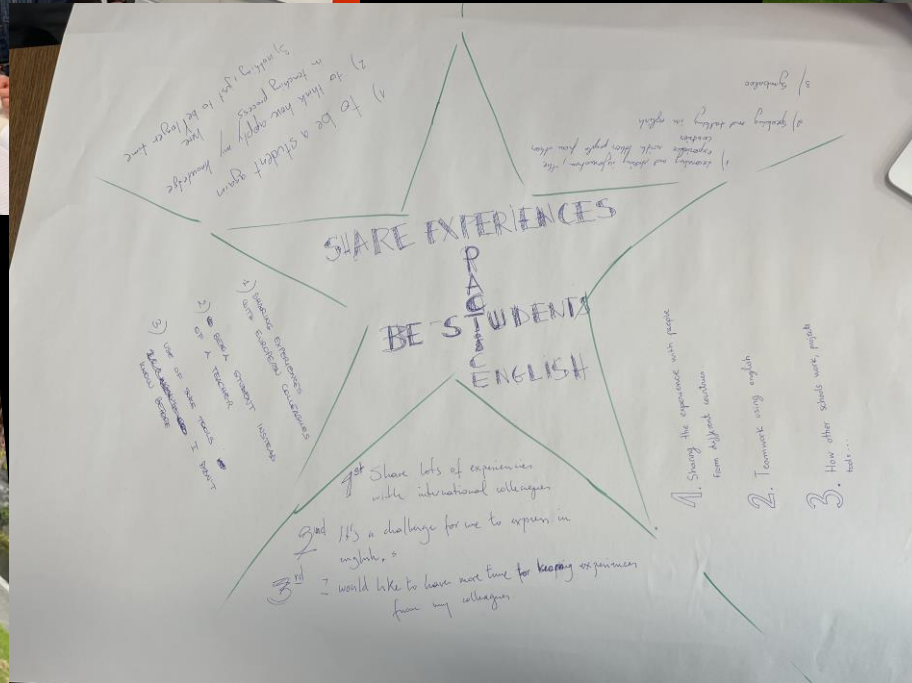 SHARE EXPERIENCES
PRACTICE
BE STUDENTS
ENGLISH
1) to be a student again
2) to think how apply my knowledge
in teaching process here
3) nothing, just to be longer time
1) Learning and sharing information, the
experience with other people from other
countries
2) Speaking and talking in english
3)
1) SHARING EXPERIENCES
WITH EUROPEAN COLLEAGUES
2) BE A STUDENT INSTEAD
OF A TEACHER
3) USE OF SOME TOOLS
I DIDN'T
KNOW BEFORE
1st Share lots of experiencies
with international colleagues
2nd It's a challenge for me to express in
english.
3rd I would like to have more time for keeping experiences
from my colleagues
1. Sharing the experience with people
from different countries
2. Teamwork using english
3. How other schools work, projects
tools...